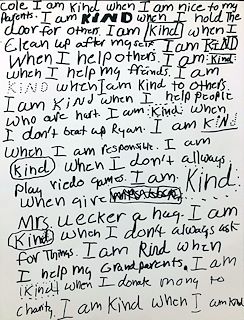 Cole. I am kind when I am nice to my
Parents. I am KIND when I hold the
door for others. I am Kind when I
Clean up after my self. I am KIND
when I help others. I am Kind
when I help my friends. I am
KIND when I am Kind to others.
I am KIND when I help people
who are hurt. I am kind when
I don't beat up Ryan. I am KIND
when I am responsible. I am
Kind when I don't allways
Play viedo games. I am Kind
when give
Mrs. Uecker a hug. I am
Kind when I don't always ask
for Things. I am Kind when
I help my Grandparents. I am
Kind when I donate mony to
charity. I am Kind when I am kind